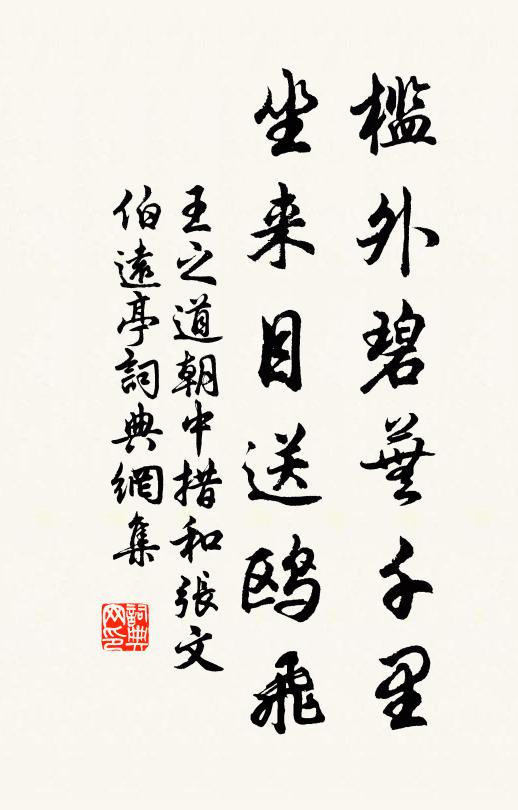 檻外碧蕪千里
坐来目送鸥飛
王之道朝中措和張文
伯遠亭詞典網集
詞典网印